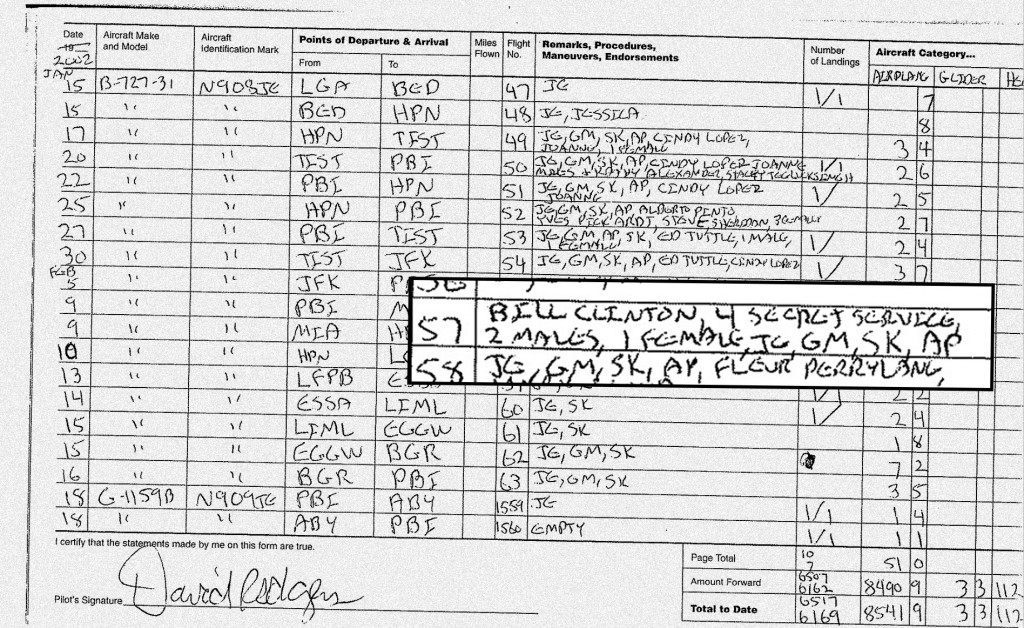 Date Aircraft Make and Model Aircraft Identification Mark Points of Departure & Arrival Miles Flown Flight No. Remarks, Procedures, Maneuvers, Endorsements Number of Landings Aircraft Category...
19 2002 From To AIRPLANE GLIDER HE
JAN
15 B-727-31 N908JE LGA BED 47 JE 1/1 7
15 " " BED HPN 48 JE, JESSICA 8
17 " " HPN TIST 49 JE, GM, SK, AP, CINDY LOPEZ, JOANNE, 1 FEMALE 3 4
20 " " TIST PBI 50 JE, GM, SK, AP, CINDY LOPEZ JOANNE 1/1 2 6
ALEXANDER,
22 " " PBI HPN 51 JE, GM, SK, AP, CINDY LOPEZ JOANNE 1/ 2 5
25 " " HPN PBI 52 JE, GM, SK, AP, ALBERTO PINTO 2 7
27 " " PBI TIST 53 JE, GM, AP, SK, ED TUTTLE, 1 MALE, 1 FEMALE 1/ 2 4
30 " " TIST JFK 54 JE, GM, SK, AP, ED TUTTLE, CINDY LOPEZ 1/ 3 7
FEB
5 " " JFK P
9 " " PBI M
9 " " MIA H
57 BILL CLINTON, 4 SECRET SERVICE,
2 MALES, 1 FEMALE, JE, GM, SK, AP
58 JE, GM, SK, AP, FLEUR PERRYLANG,
10 " " HPN L
13 " " LFPB ES 2 2
14 " " ESSA LIML 60 JE, SK 1/ 2 4
15 " " LIML EGGW 61 JE, SK 1 8
15 " " EGGW BGR 62 JE, GM, SK 7 2
16 " " BGR PBI 63 JE, GM, SK 3 5
18 G-1159B N909JE PBI ABY 1559 JE 1/1 1 4
18 " " ABY PBI 1560 EMPTY 1/1 1 1
I certify that the statements made by me on this form are true.
Pilot's Signature David Rodgers
Page Total 10 7 51 0
Amount Forward 6507 6162 8490 9 3 3 112
Total to Date 6517 6169 8541 9 3 3 112